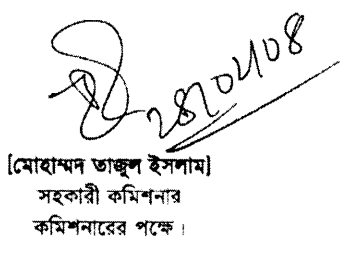 ২৪/০৫/০৪
[মোহাম্মদ তাজুল ইসলাম]
সহকারী কমিশনার
কমিশনারের পক্ষে।